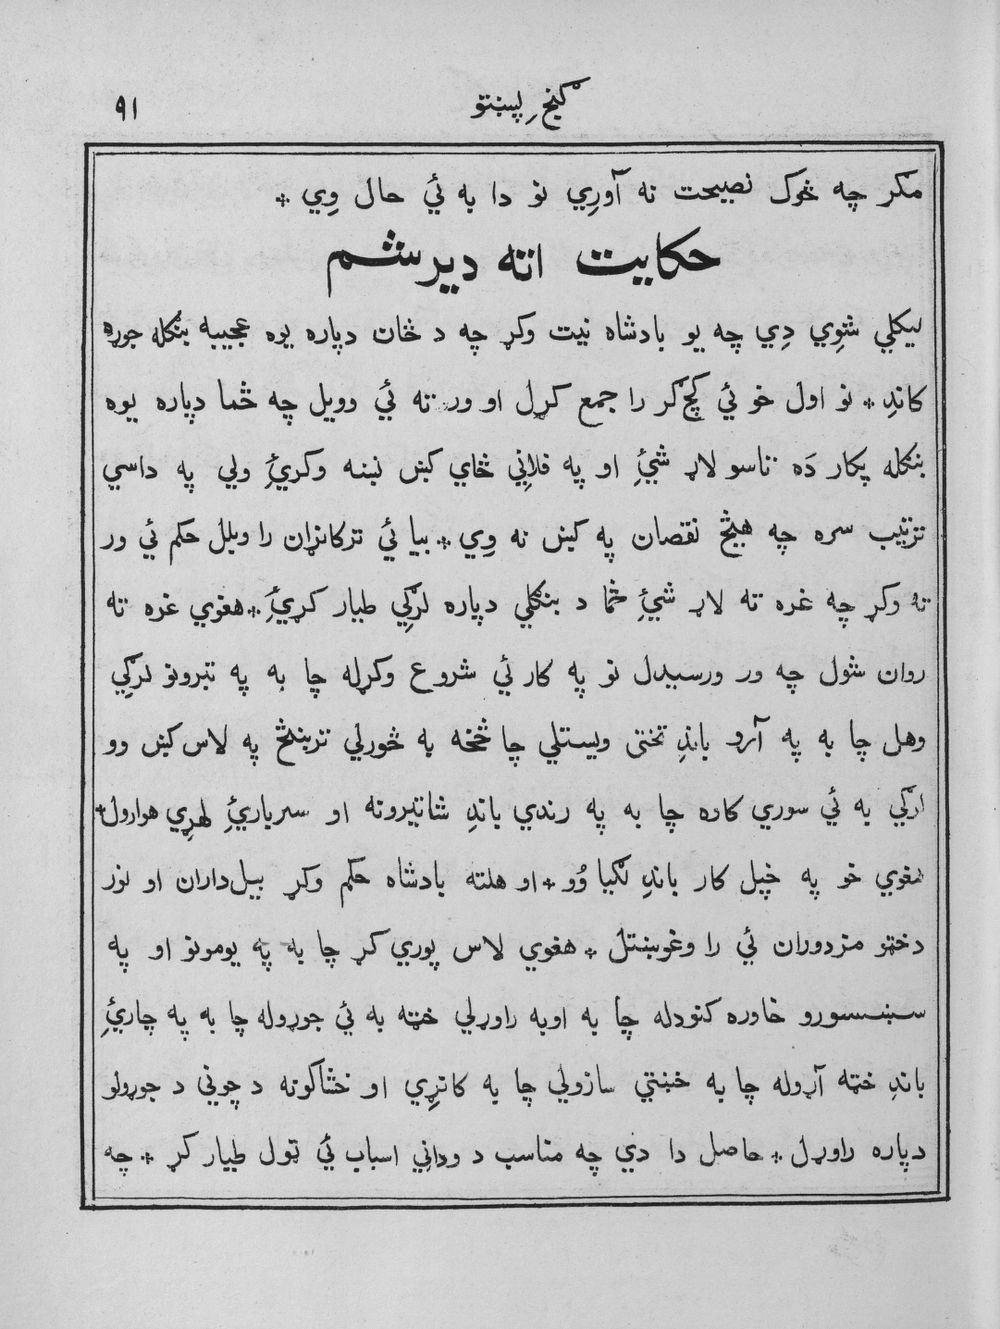 گنجِ پښتو ۹۱
مکر چه څوک نصیحت نه آورِي نو دا به ئي حال وِي *
حکایت اته دیرشم
لیکلي شوِي دِي چه یو بادشاه نیت وکړ چه د ځان دپاره یوه عجیبه بنګله جوړه
کاندِ * نو اول خو ئي کچ ګر را جمع کړل او ور ته ئي وویل چه ځما دپاره یوه
بنګله پکار دَه تاسو لاړ شئِ او په فلانِي ځاي کښ نښه وکړئِ ولي په داسي
ترتیب سره چه هیڅ نقصان په کښ نه وِي * بیا ئي ترکانړان را وبلل حکم ئي ور
ته وکړ چه غره ته لاړ شئِ ځما د بنګلي دپاره لرګِي طیار کړئِ * هغوي غره ته
روان شول چه ور ورسیدل نو په کار ئي شروع وکړله چا به په تبرونو لرګِي
وهل چا به په آرو باندِ تختي ویستلي چا څخه په څورلي تربنځ په لاس کښ وو
لرګي به ئي سوري کاوه چا به په رندي باندِ شاتیرونه او سرباریئِ لهرِي هوارول *
هغوي خو په خپل کار باندِ لګیا وُو * او هلته بادشاه حکم وکړ بیلداران او نور
دختو مزدوران ئي را وغوښتل * هغوي لاس پوري کړ چا به په یومونو او په
سښسورو خاوره کنودله چا به اوبه راوړلي خټه به ئي جوړوله چا به په چارئِ
باندِ خټه آړوله چا به خښتي سازولي چا به کانړِي او خشاکونه د چوني د جوړولو
دپاره راوړل * حاصل دا دي چه مناسب د ودانِي اسباب ئي ټول طیار کړ * چه